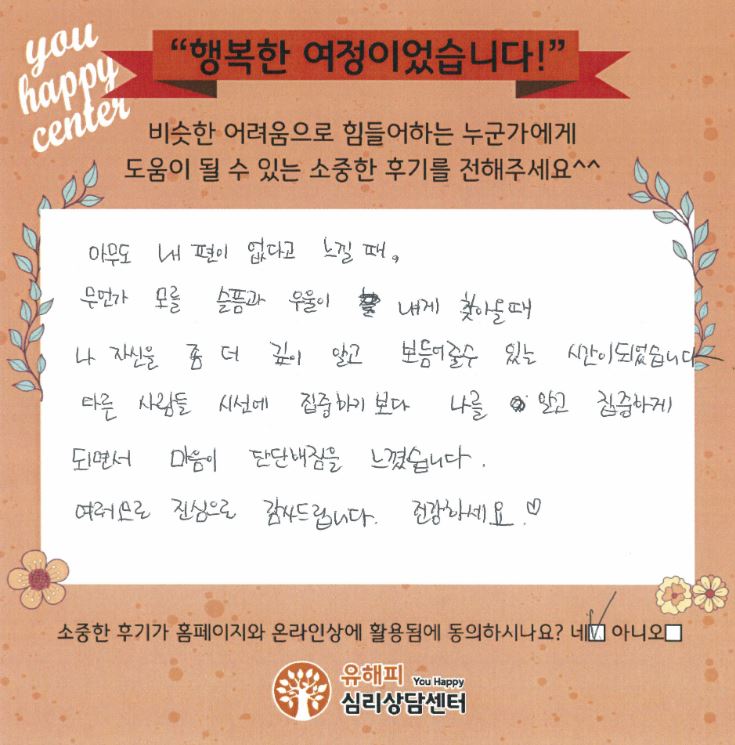 you
happy
center
“행복한 여정이었습니다!”
비슷한 어려움으로 힘들어하는 누군가에게
도움이 될 수 있는 소중한 후기를 전해주세요^^
아무도 내 편이 없다고 느낄 때,
무언가 모를 슬픔과 우울이 내게 찾아올때
나 자신을 좀 더 깊이 알고 보듬어줄수 있는 시간이되었습니다
타른 사람들 시선에 집중하기 보다 나를 알고 집중하게
되면서 마음이 단단해짐을 느꼈습니다.
여러모로 진심으로 감사드립니다. 건강하세요.♡
소중한 후기가 홈페이지와 온라인상에 활용됨에 동의하시나요? 네☑ 아니오□
유해피 You Happy
심리상담센터